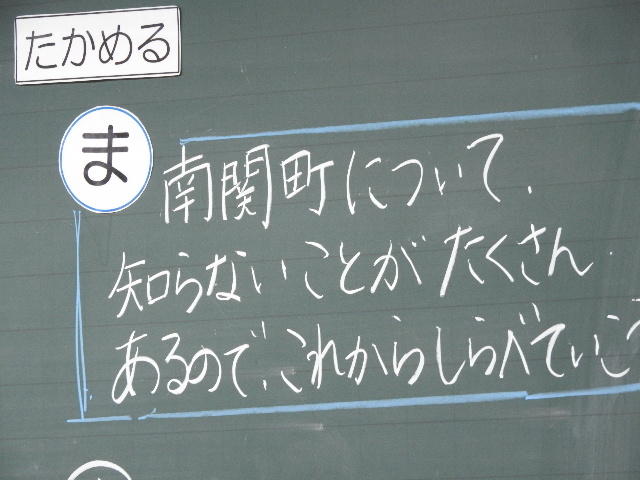 たかめる
ま
南関町について、
知らないことがたくさん
あるので、これからしらべていこう